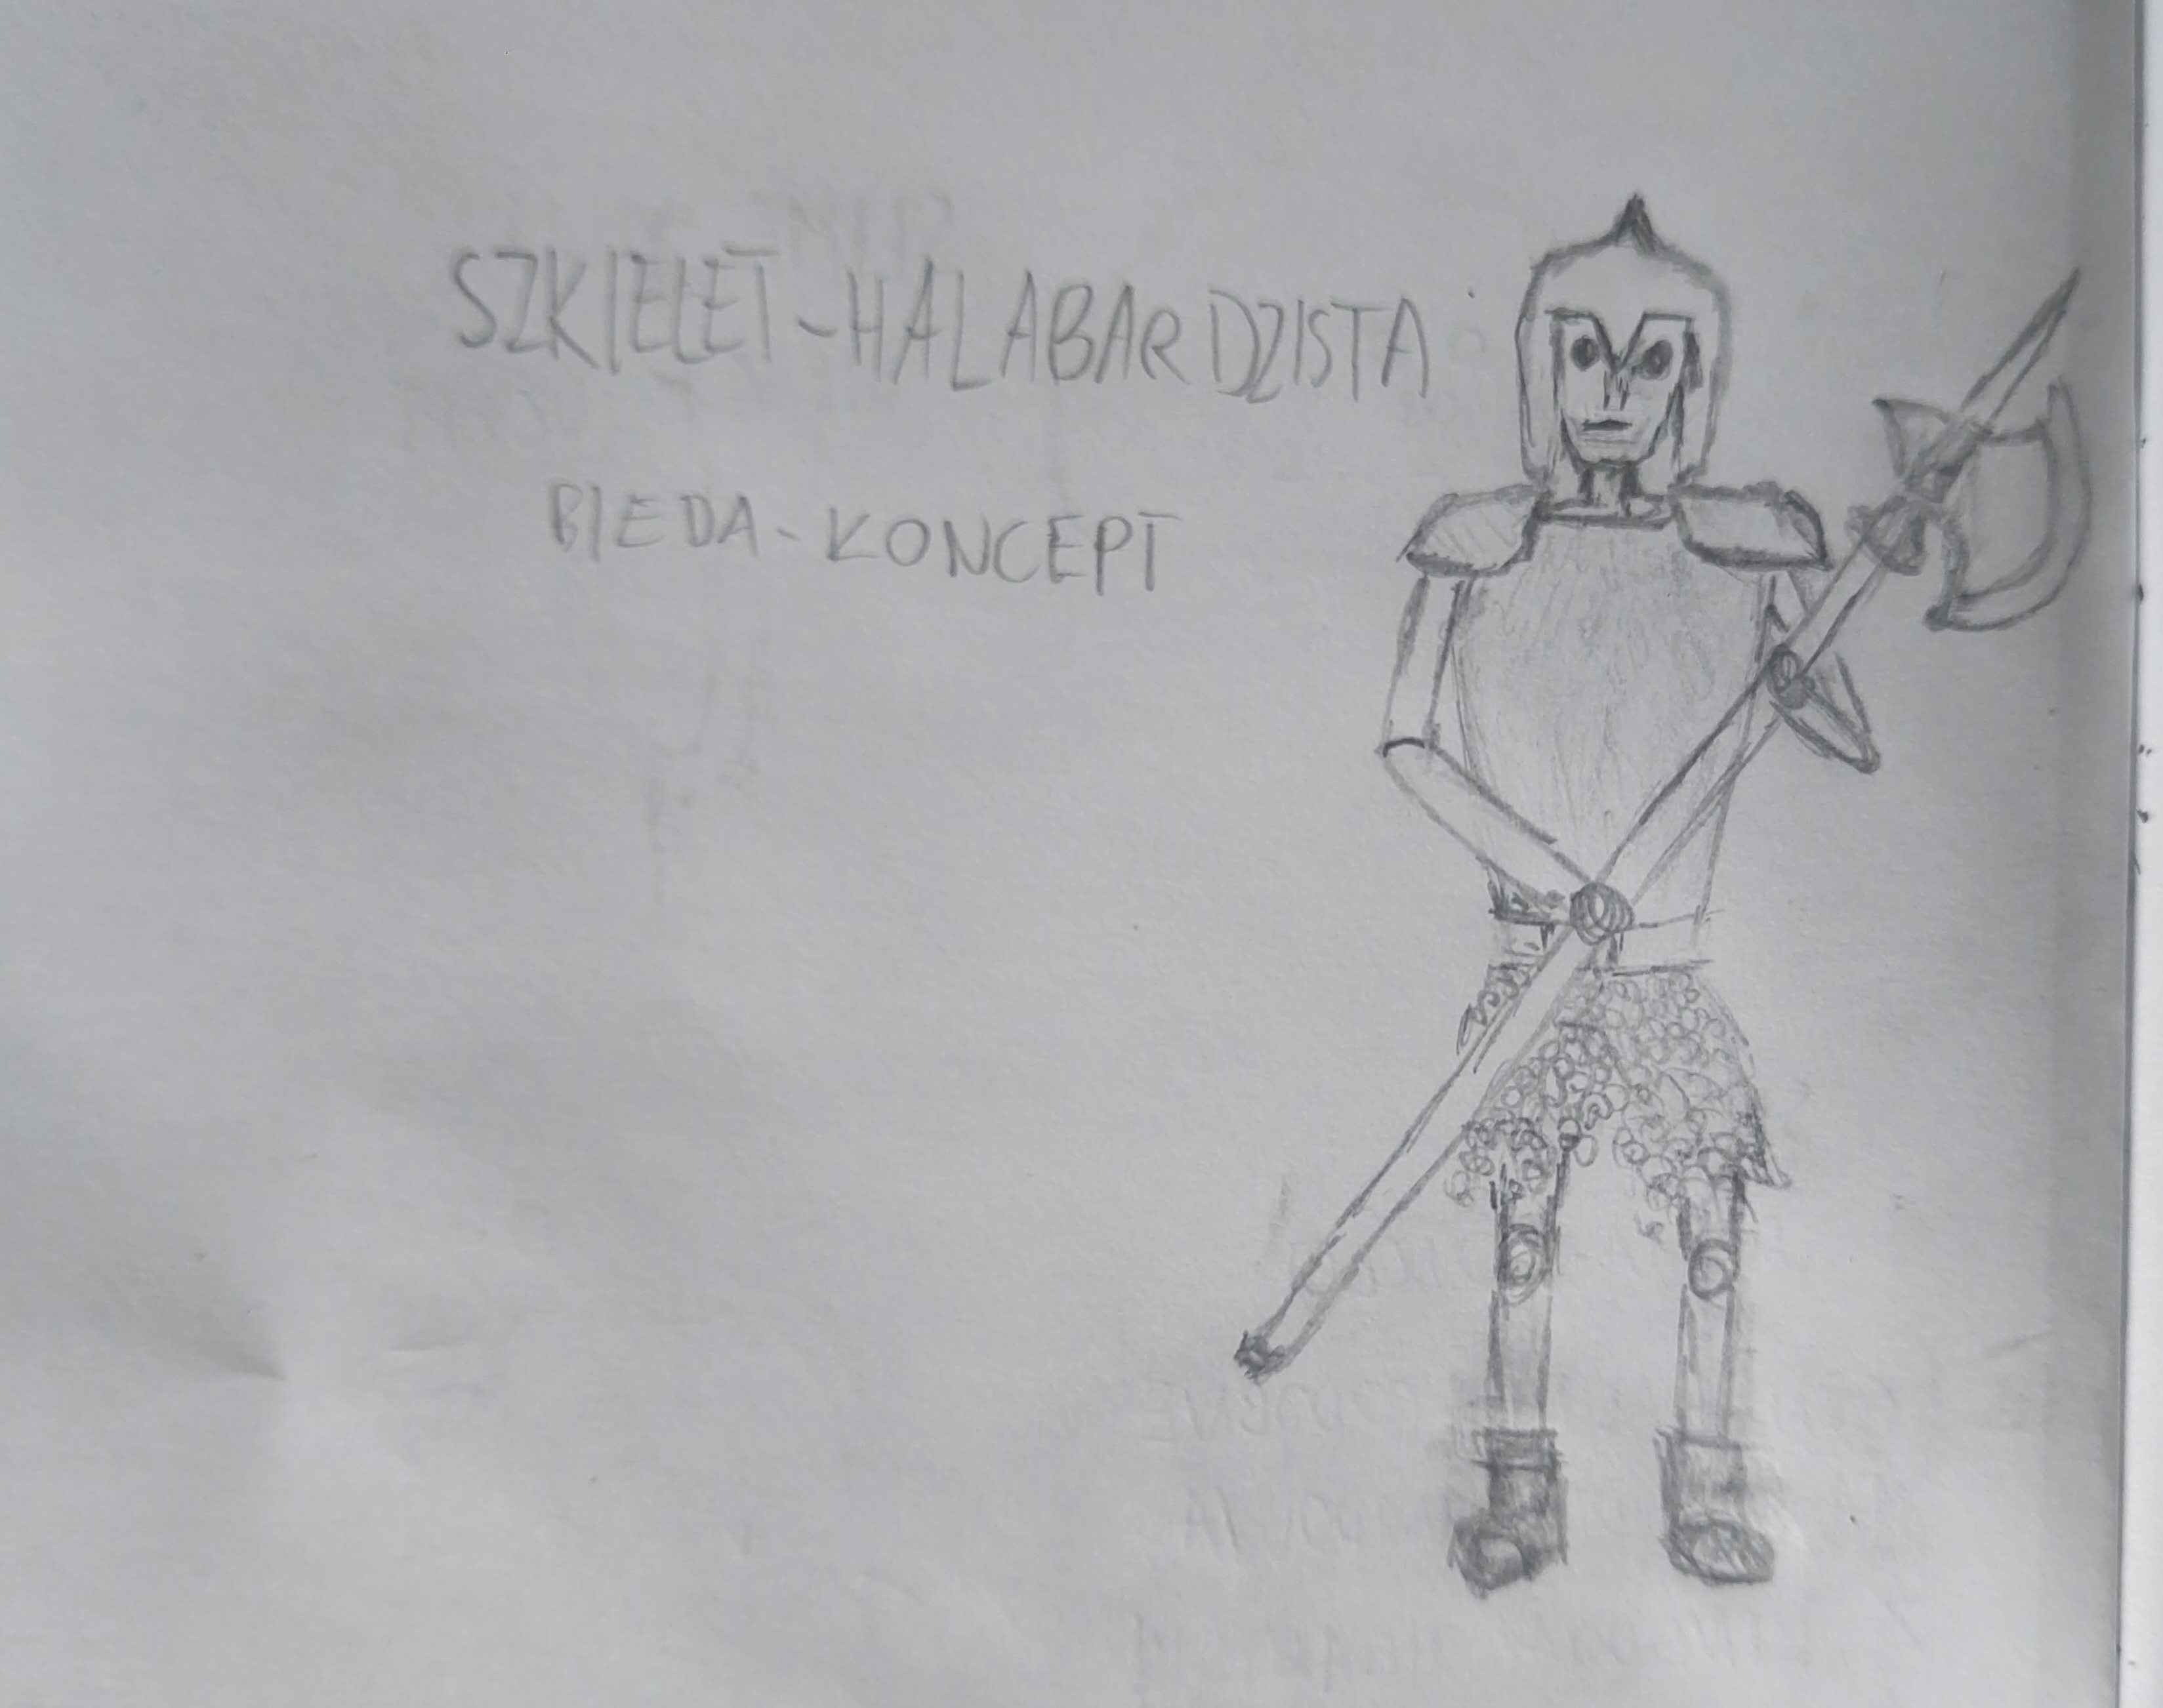 SZKIELET-HALABARDZISTA
BIEDA-KONCEPT